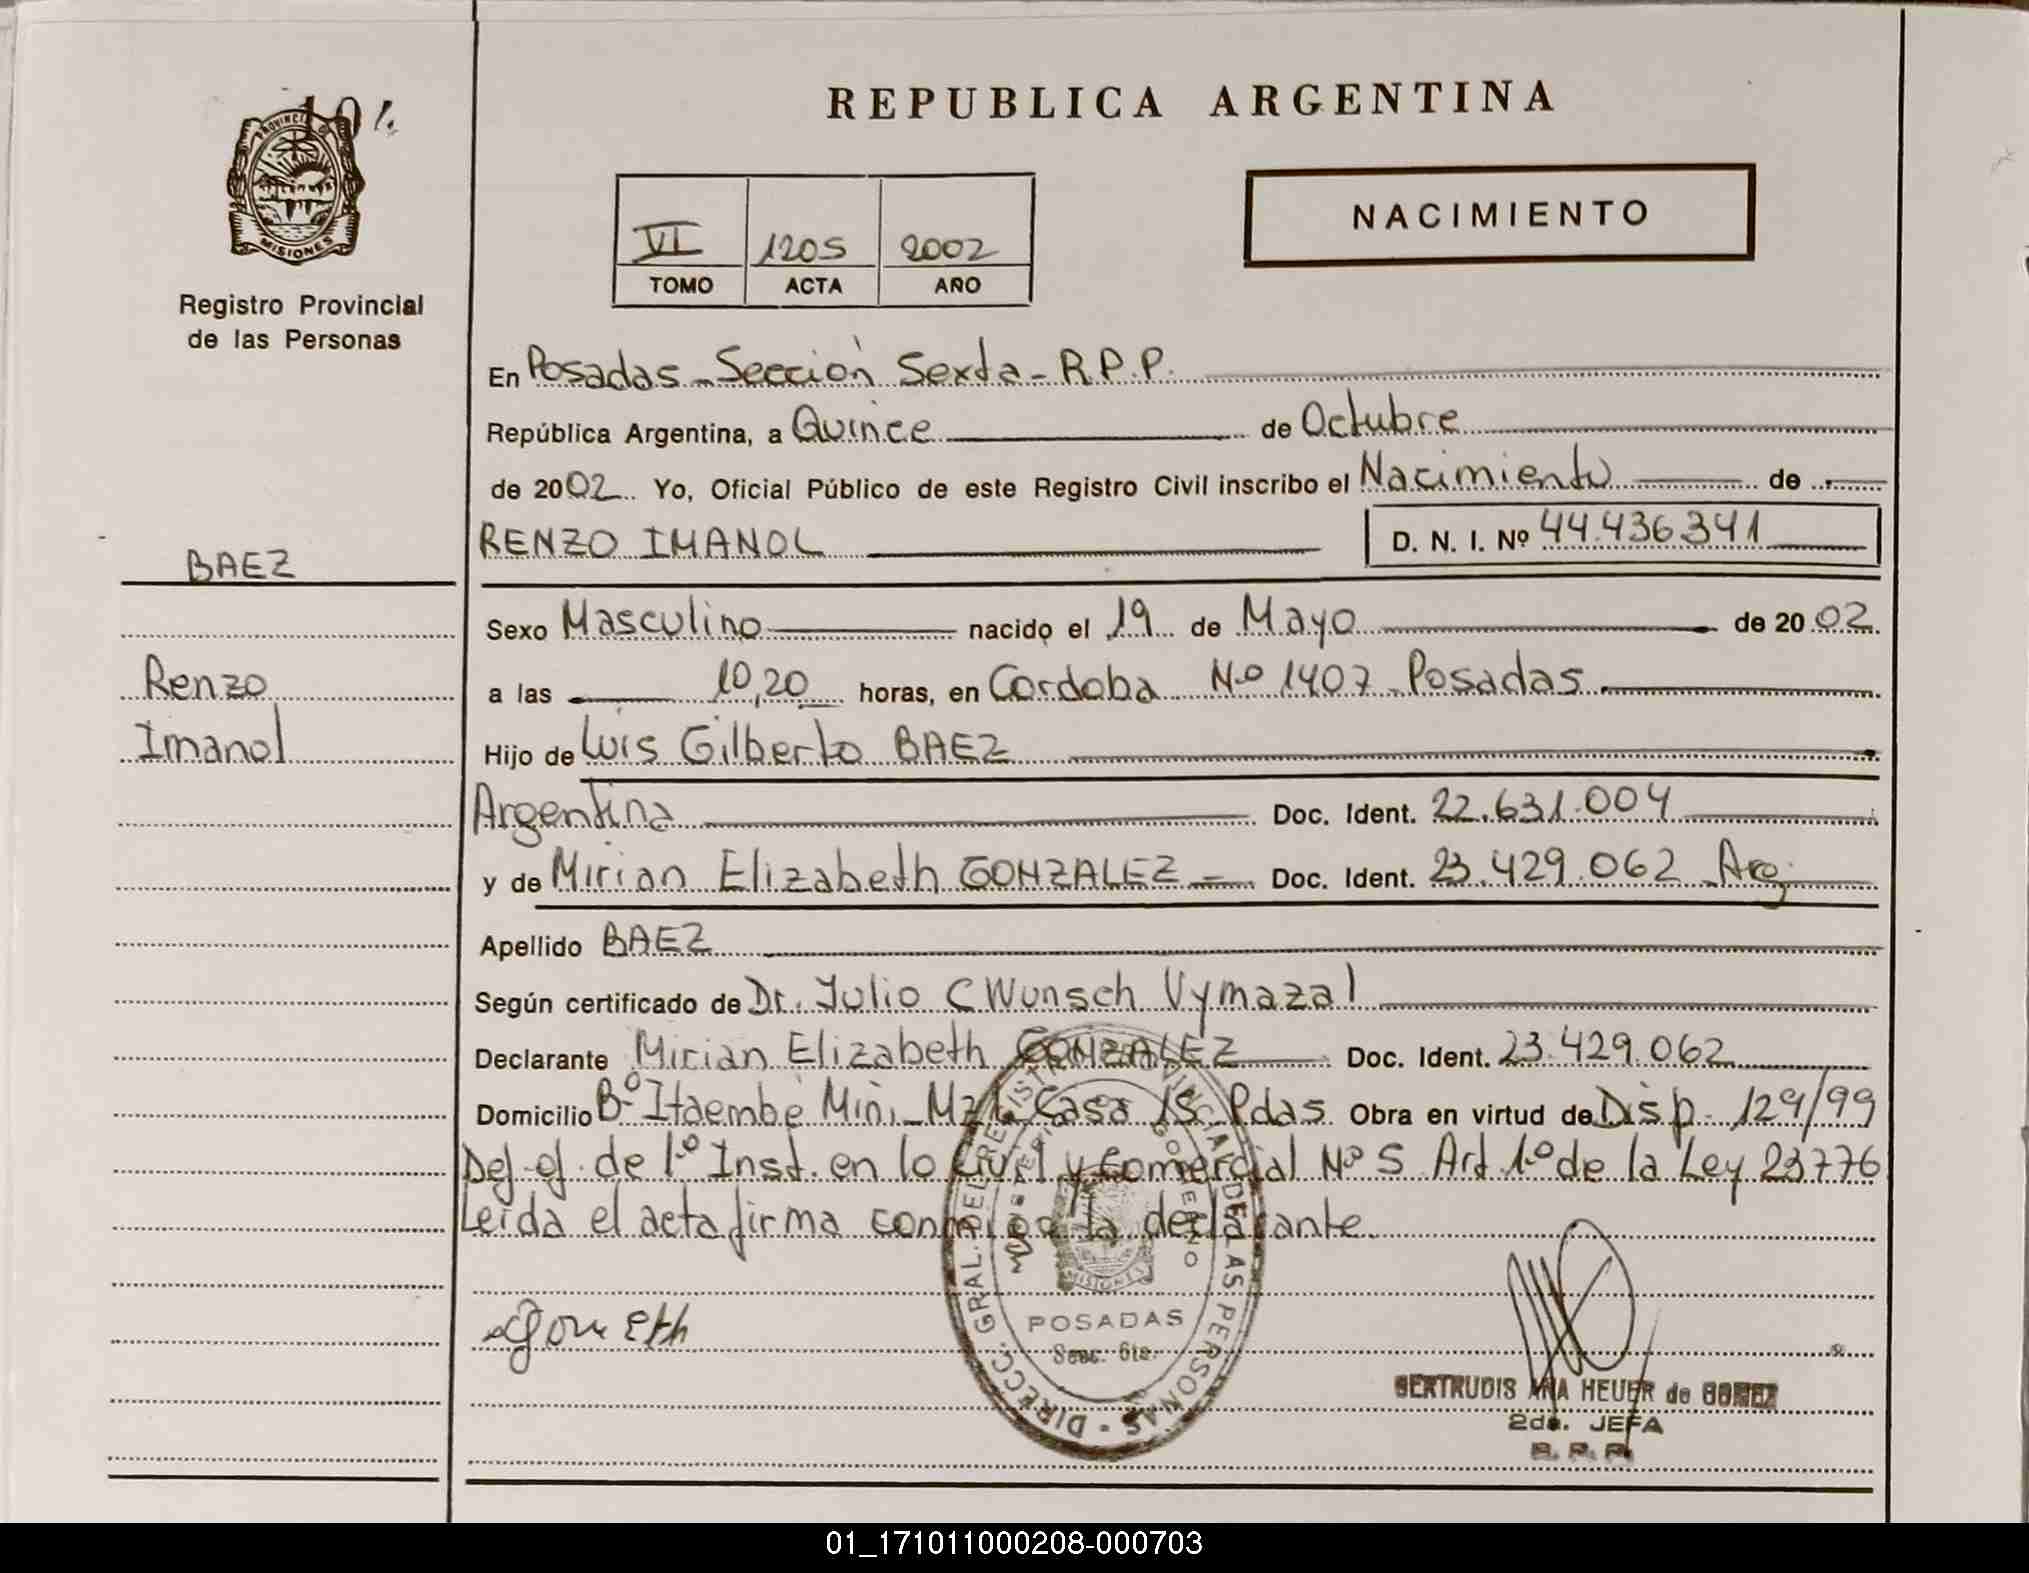 REPUBLICA ARGENTINA
PROVINCIA DE
MISIONES
Registro Provincial
de las Personas
NACIMIENTO
VI 1205 2002
TOMO ACTA AÑO
En Posadas - Sección Sexta - R.P.P.
República Argentina, a Quince de Octubre
de 2002. Yo, Oficial Público de este Registro Civil inscribo el Nacimiento de
RENZO IMANOL D. N. I. Nº 44.436.341
BAEZ
Renzo
Imanol
Sexo Masculino nacido el 19 de Mayo de 2002.
a las 10,20 horas, en Cordoba Nº 1407 Posadas
Hijo de Luis Gilberto BAEZ
Argentina Doc. Ident. 22.631.004
y de Mirian Elizabeth GONZALEZ Doc. Ident. 23.429.062 Arg.
Apellido BAEZ
Según certificado de Dr. Julio C Wunsch Vymazal
Declarante Mirian Elizabeth GONZALEZ Doc. Ident. 23.429.062
Domicilio Bº Itaembé Miní - Casa 15 Pdas. Obra en virtud de Disp. 129/99
Def. of. de 1º Inst. en lo Civil y Comercial Nº 5 Art 1º de la Ley 23776
Leída el acta firma conmigo la declarante.
DIRECC. GRAL. DEL REGISTRO PROVINCIAL DE LAS PERSONAS
MISIONES
POSADAS
Secc. 6ta.
GERTRUDIS ANA HEUER de GOMEZ
2da. JEFA
R. P. P.
01_171011000208-000703